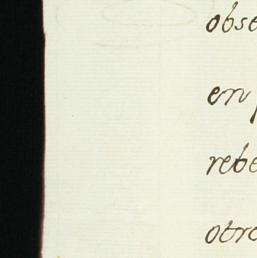 obse
en
rebe
otro